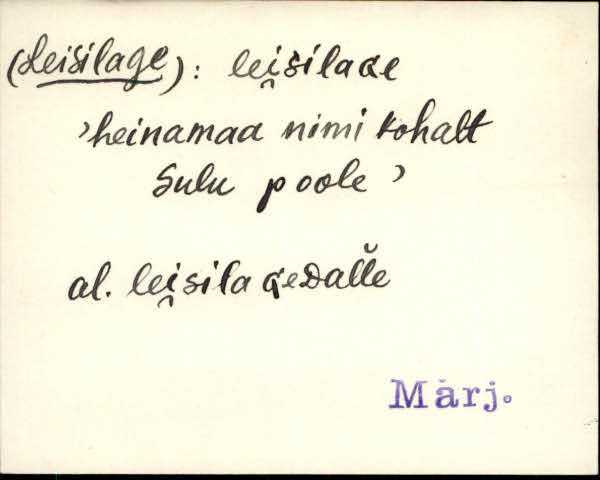 (Leisilage): lei̯silaɢe
›heinamaa nimi kohalt
Sulu poole›
al. lei̯silaɢeᴅalle
Märj.